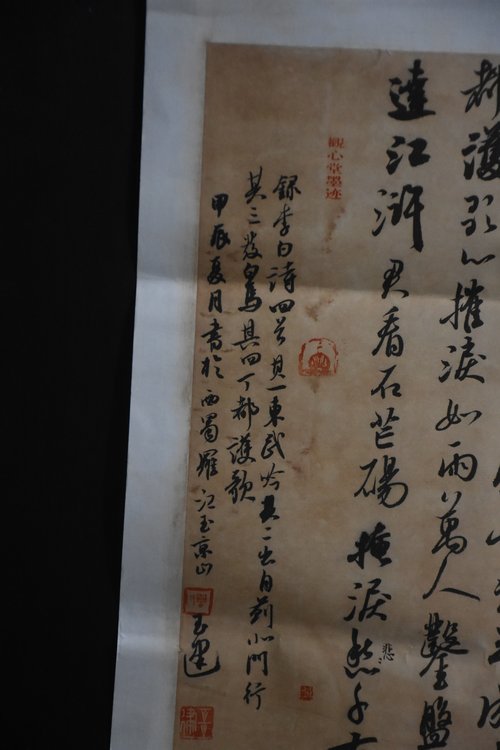 都護歌心摧淚如雨萬人鑿盤
達江滸君看石芒碭掩淚愁千
悲
觀心堂墨迹
錄李白詩四首其一東武吟其二出自薊北門行
其三發白馬其四丁都護歌
甲辰夏月書於西蜀羅江玉京山